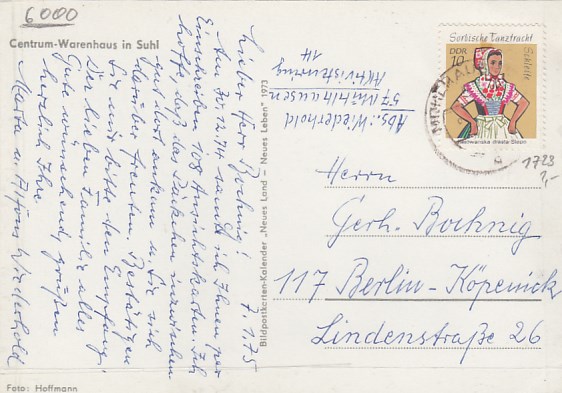 6000
Centrum-Warenhaus in Suhl
7.1.75
Lieber Herr Bochnig!
Am 27.12.74 sandte ich Ihnen per
Einschreiben 108 Ansichtskarten. Ich
hoffe, daß das Päckchen inzwischen
gut ankam u. Sie sich
darüber freuten. Bestätigen
Sie mir bitte den Empfang!
Der lieben Familie alles
Gute wünschend, grüßen
herzlich Ihre
Marta u. Alfons Wiederhold
Foto: Hoffmann
Bildpostkarten-Kalender „Neues Land – Neues Leben" 1973
Abs.: Wiederhold
57 Mühlhausen
Aktivistenring
14
Sorbische Tanztracht
Schleife
DDR
10
MÜHLHAUSEN
1723
1,-
Herrn
Gerh. Bochnig
117 Berlin-Köpenick
Lindenstraße 26